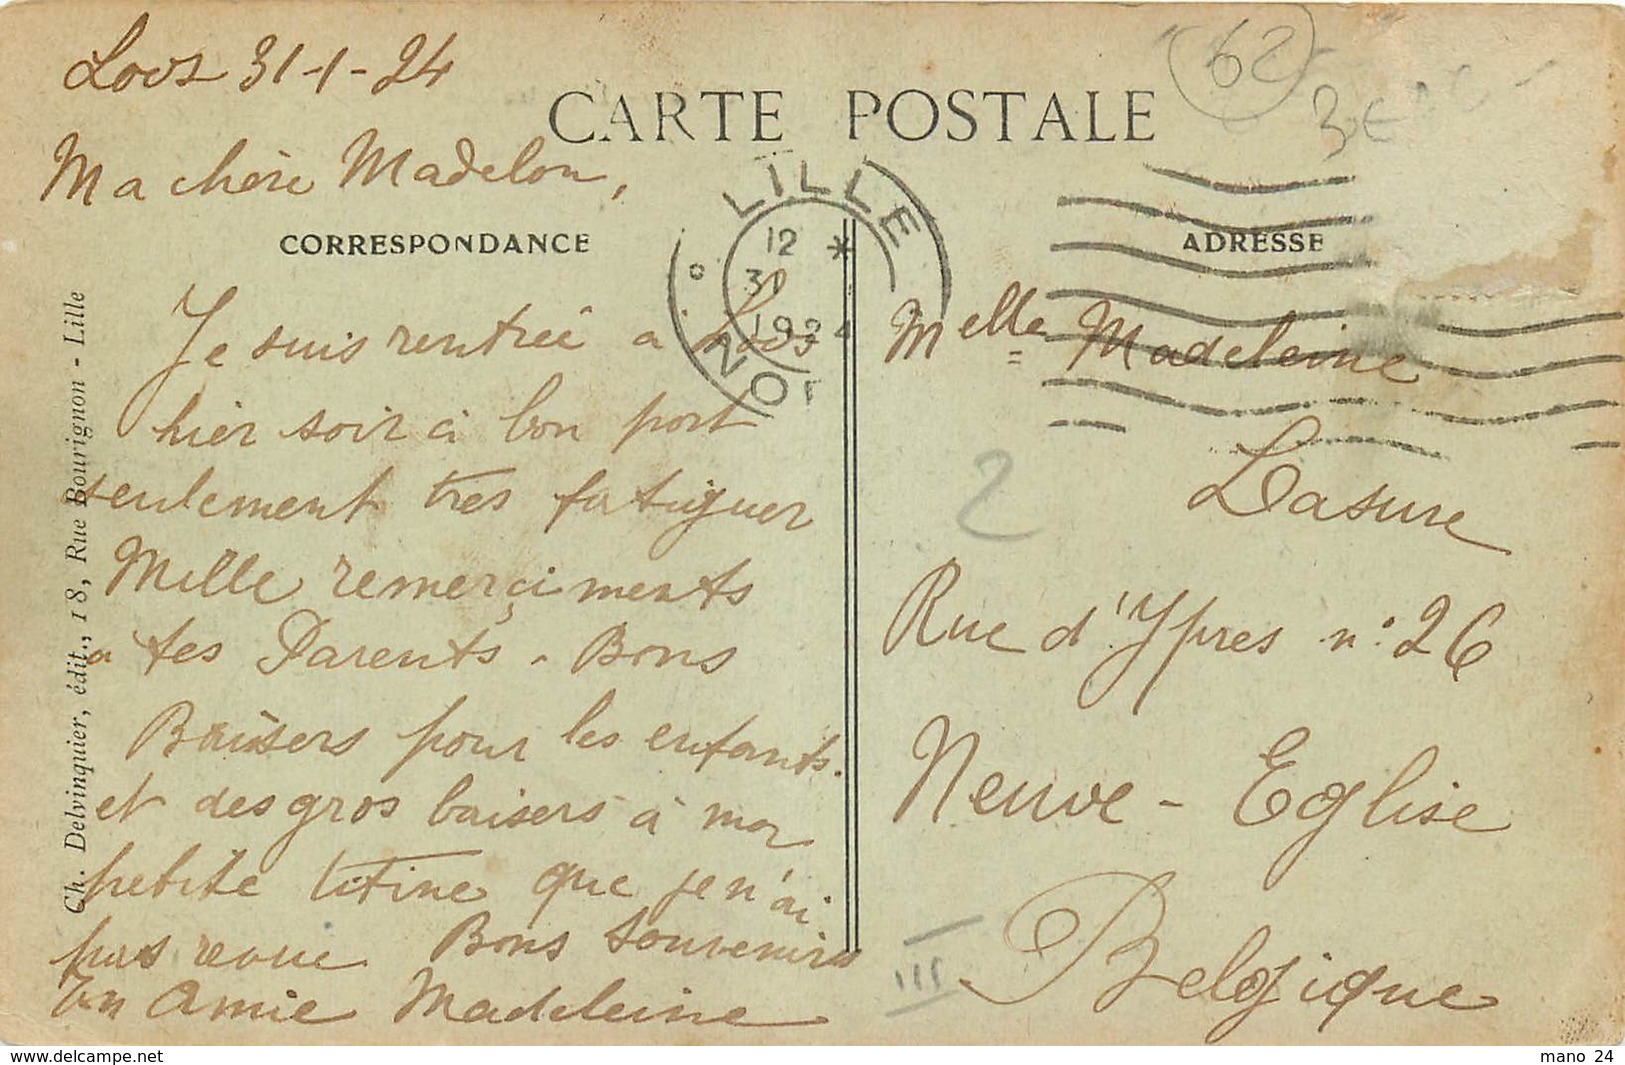 Loos 31-1-24
62
3€
CARTE POSTALE
Ma chère Madelon,
CORRESPONDANCE
ADRESSE
LILLE
12 *
31
1924
NORD
Je suis rentrée à Loos
hier soir à bon port
seulement très fatiguer
Mille remerçiments
a tes Parents. Bons
Baisers pour les enfants.
et des gros baisers à mon
petite titine que je n'ai
pas revue Bons Souvenirs
Ton Amie Madeleine
Melle Madeleine
Lasure
2
Rue d'Ypres n° 26
Neuve-Eglise
Belgique
III
Ch. Delvinquier, édit., 18, Rue Bourignon - Lille
mano 24